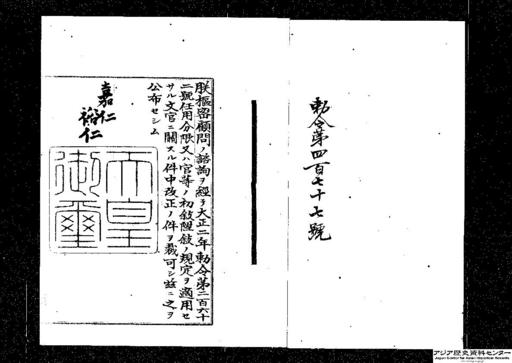 勅令第四百七十七號
朕樞密顧問ノ諮詢ヲ經テ大正二年勅令第二百六十
二號任用分限又ハ官等ノ初敍陞敍ノ規定ヲ適用セ
サル文官ニ關スル件中改正ノ件ヲ裁可シ茲ニ之ヲ
公布セシム
嘉仁
裕仁
天皇
御璽
アジア歴史資料センター
Japan Center for Asian Historical Records